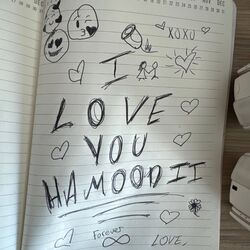 XOXO
I
LOVE
YOU
HAMOODII
Forever
LOVE,